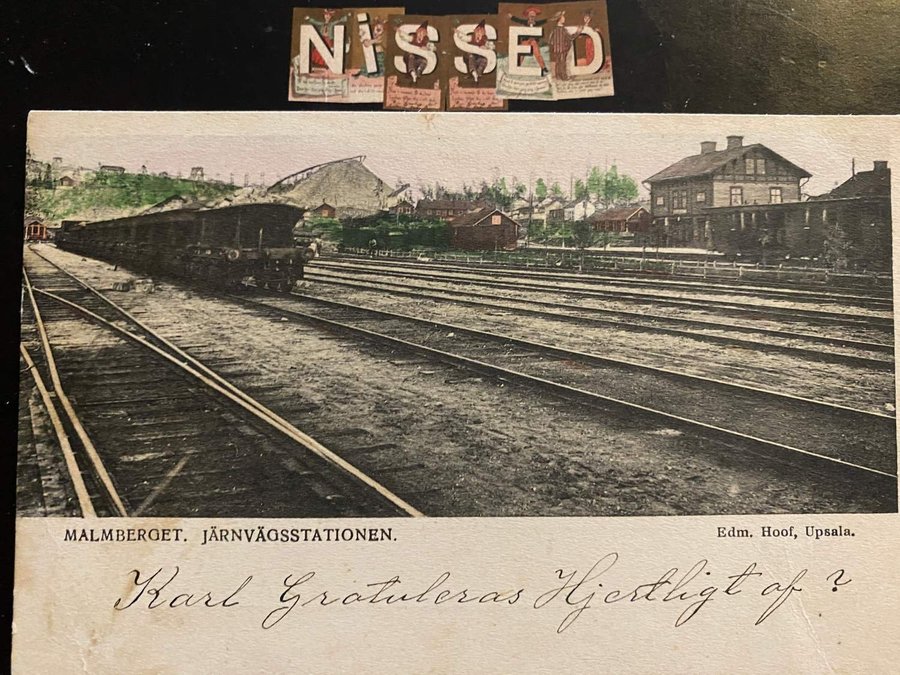 NiSSED
MALMBERGET. JÄRNVÄGSSTATIONEN.
Edm. Hoof, Upsala.
Karl Gratuleras Hjertligt af ?